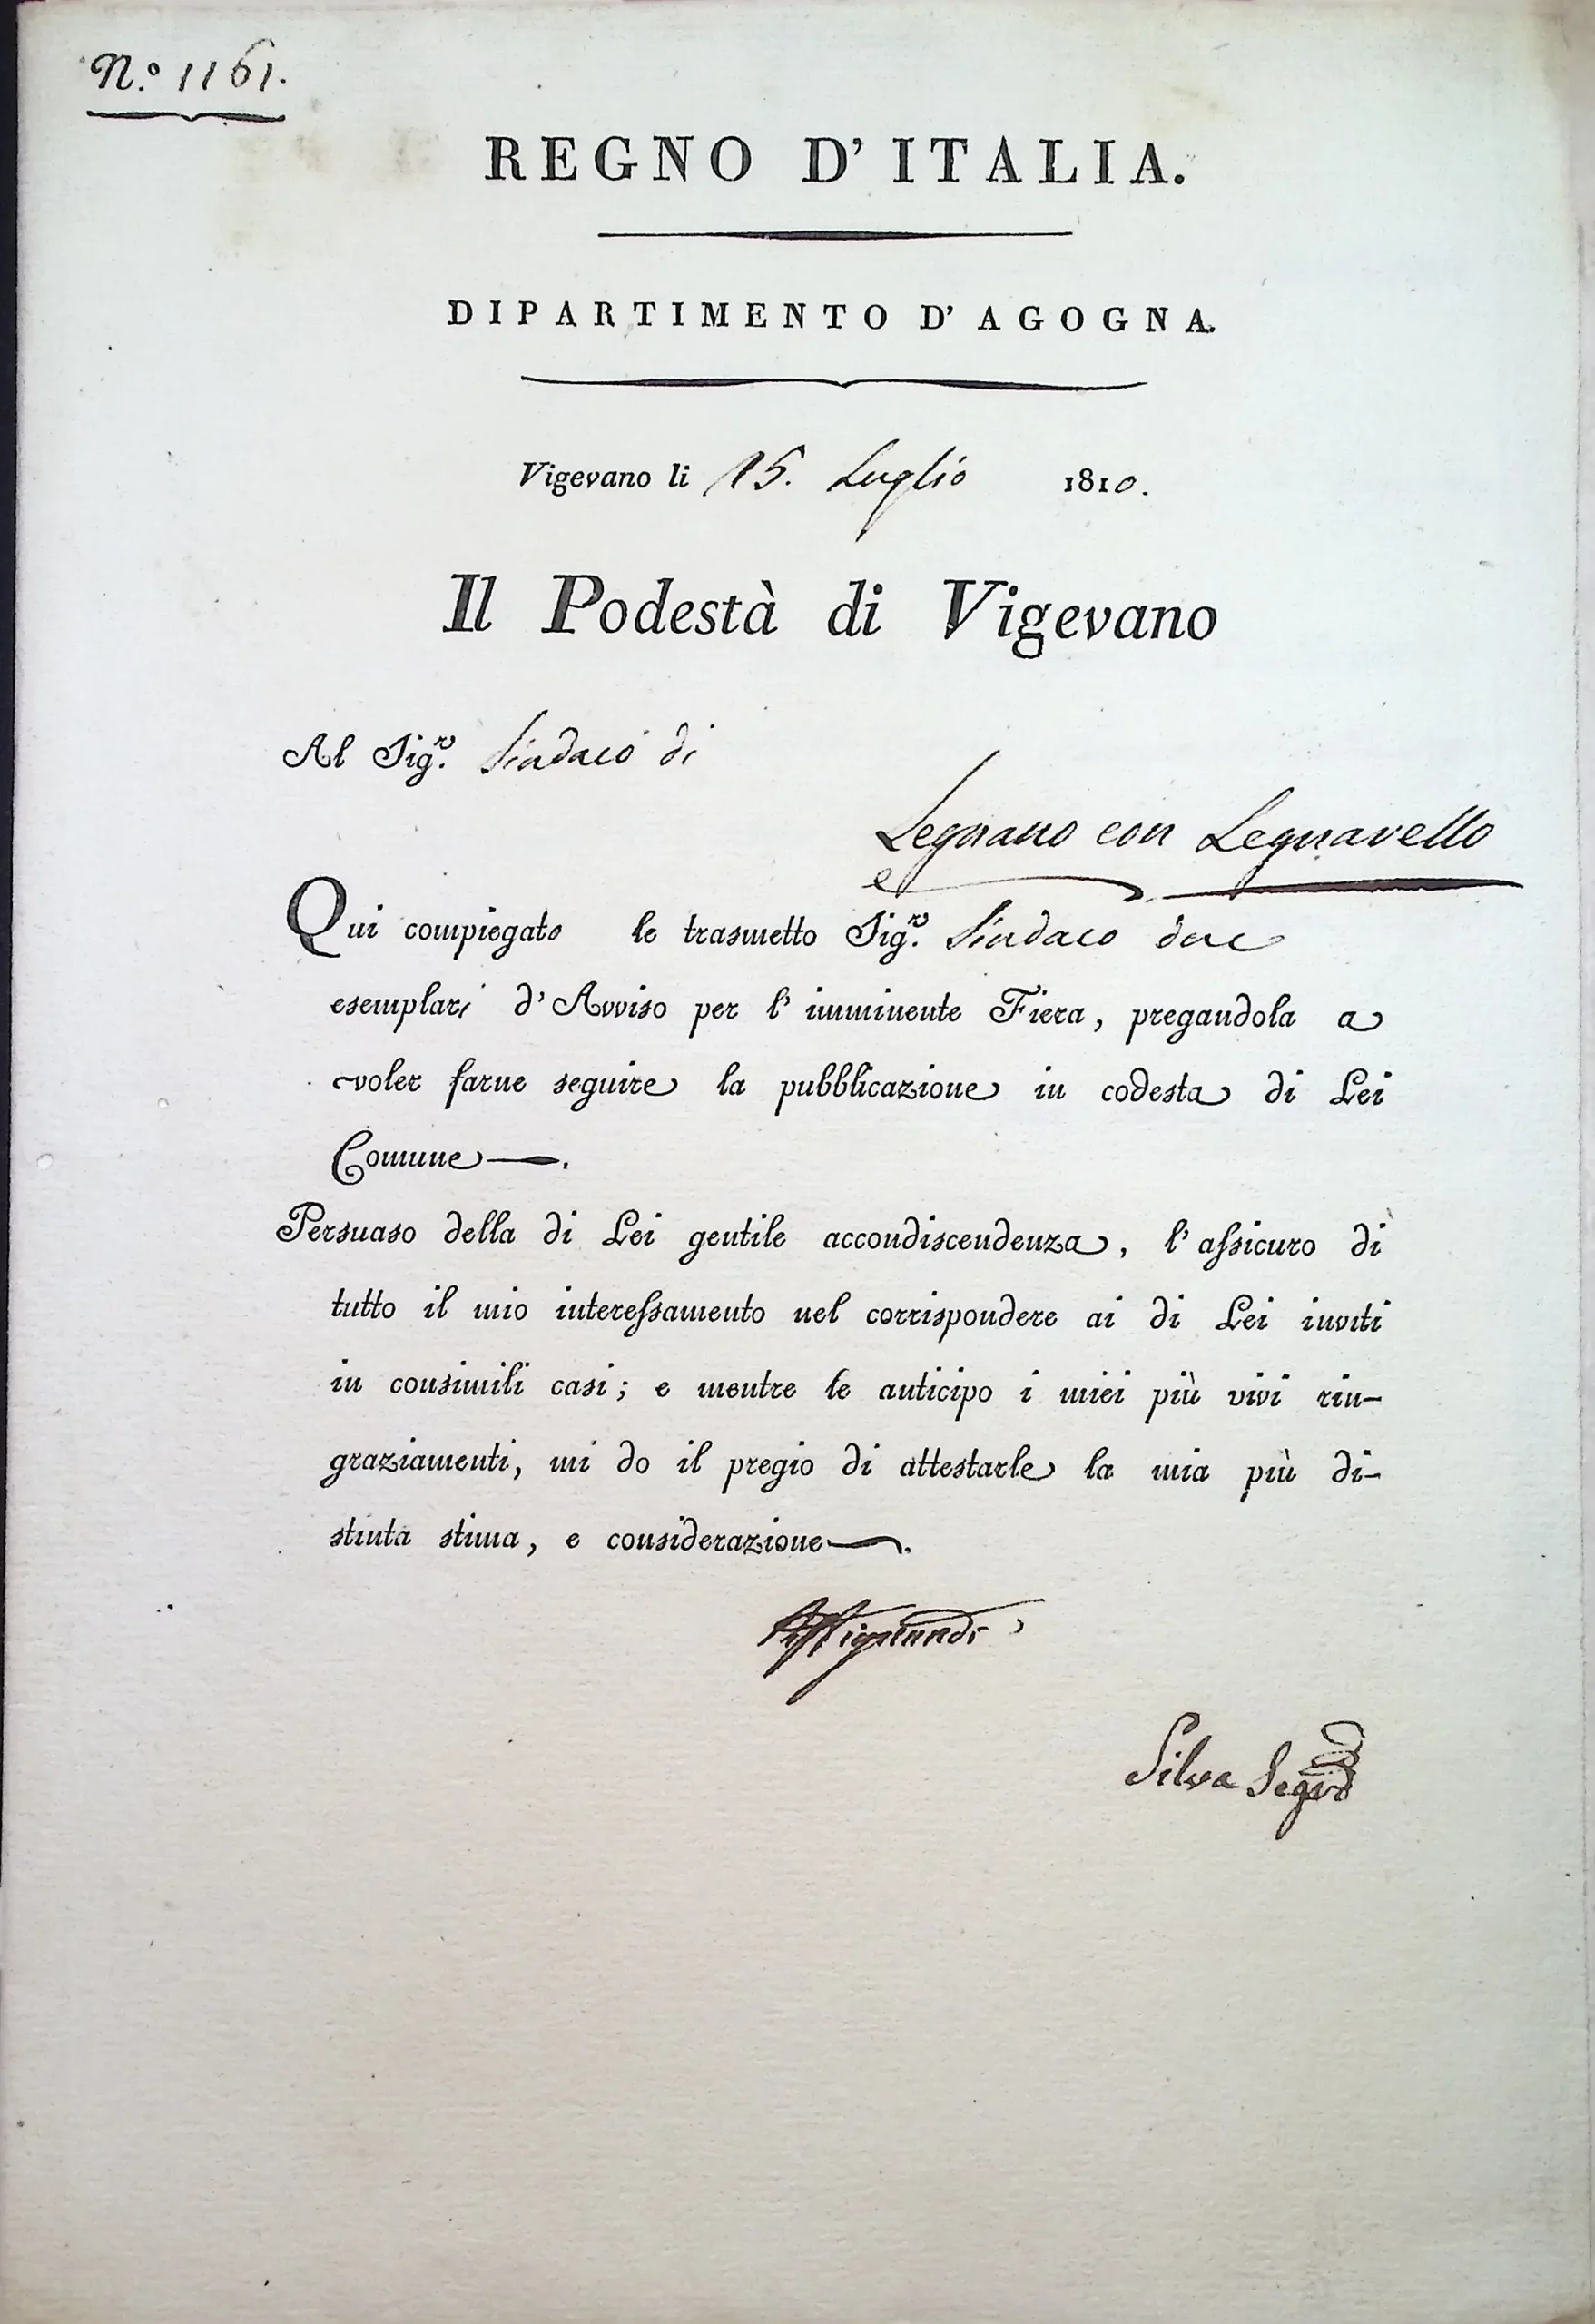 N.º 1161.
REGNO D' ITALIA.
DIPARTIMENTO D' AGOGNA.
Vigevano li 15. Luglio 1810.
Il Podestà di Vigevano
Al Sig.r Sindaco di
Legnano con Legnarello
Qui compiegato le trasmetto Sig.r Sindaco due
esemplari d' Avviso per l' imminente Fiera, pregandola a
voler farne seguire la pubblicazione in codesta di Lei
Comune —.
Persuaso della di Lei gentile accondiscendenza, l' assicuro di
tutto il mio interessamento nel corrispondere ai di Lei inviti
in consimili casi; e mentre le anticipo i miei più vivi rin-
graziamenti, mi do il pregio di attestarle la mia più di-
stinta stima, e considerazione —.
Silva Segrº